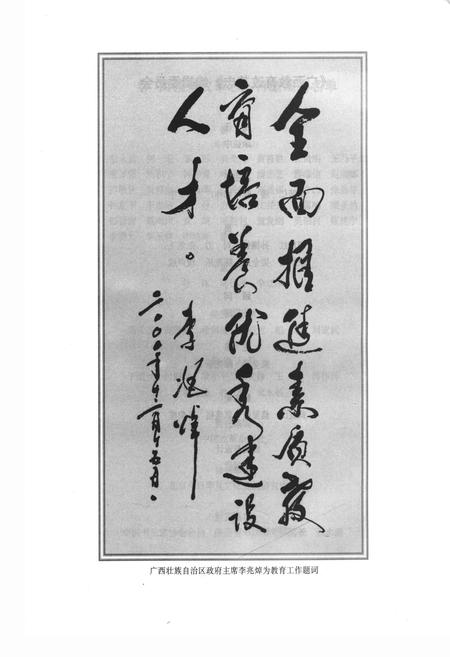 全面推进素质教
育培养优秀建设
人才。
李兆焯
二〇〇〇年十二月十五日
广西壮族自治区政府主席李兆焯为教育工作题词